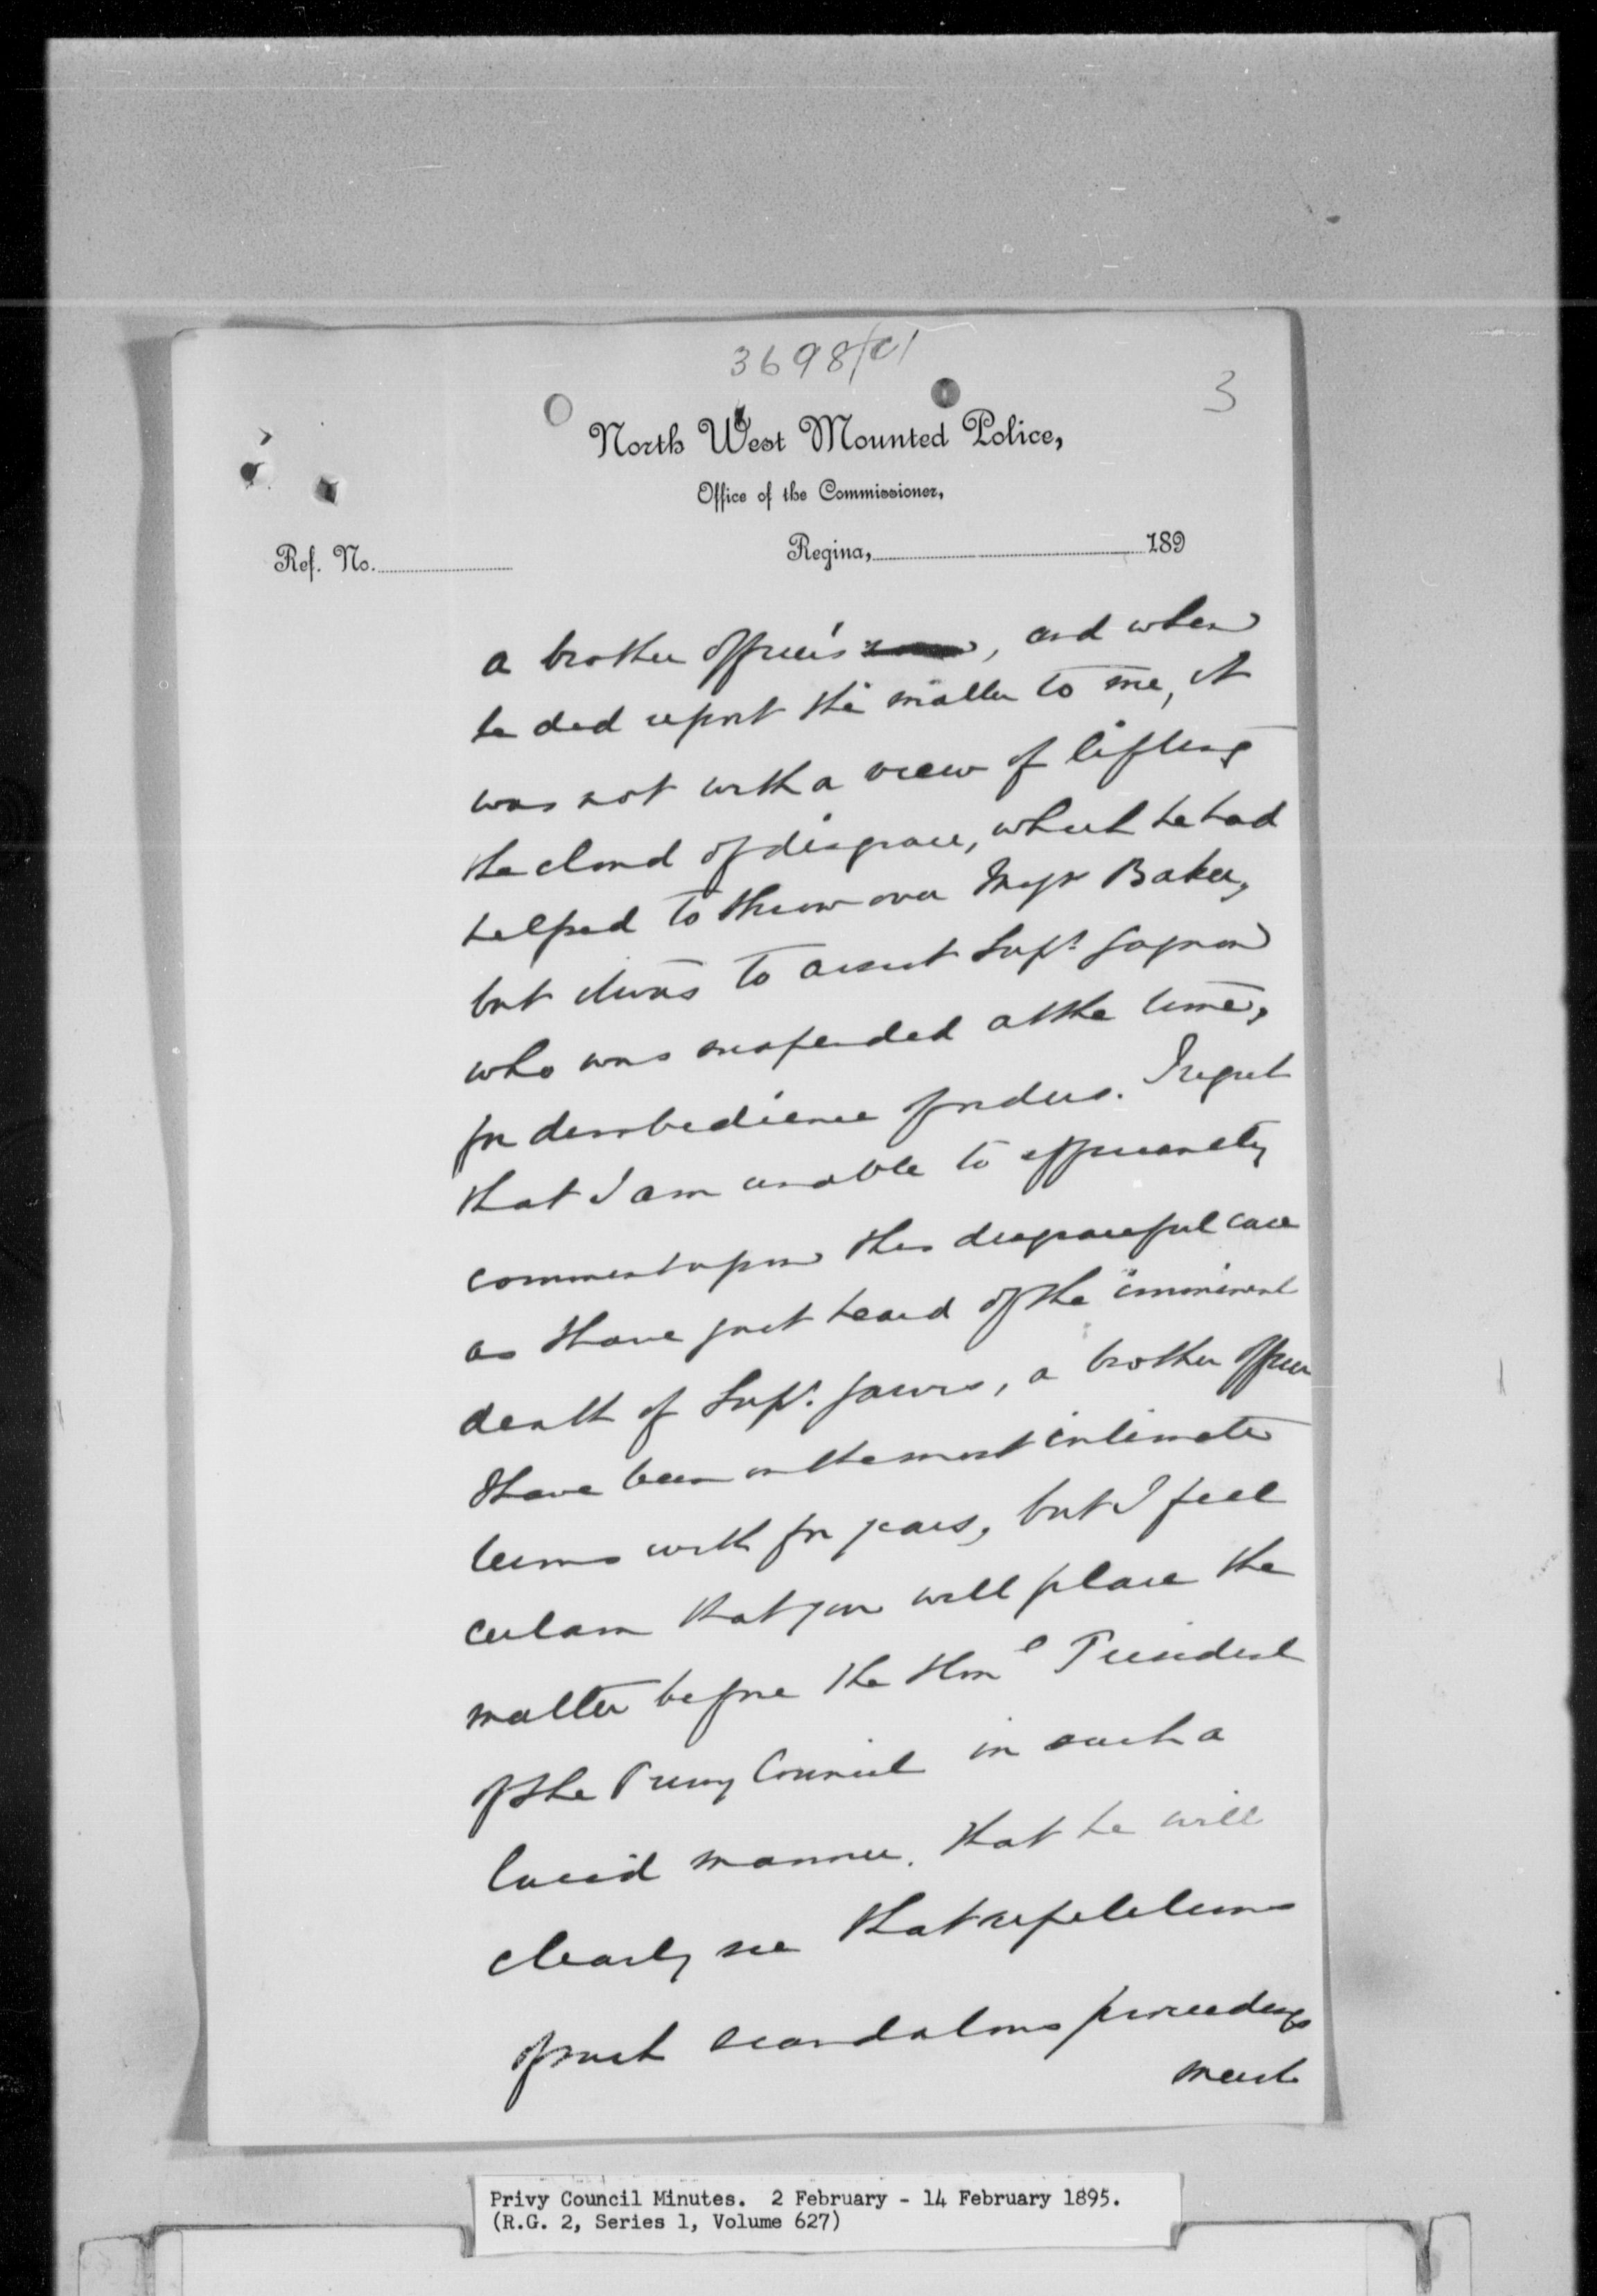 3698
3
North West Mounted Police,
Office of the Commissioner,
Ref. No.
Regina, 189
a brother officer's, and when
he did report the matter to me, it
was not with a view of lifting
the cloud of disgrace, which he had
helped to throw over Baker,
but it was to assist Supt. Gagnon
who was suspended at the time,
for disobedience of orders. I regret
that I am unable to efficiently
comment upon this disgraceful case
as I have just heard of the imminent
death of Supt. Jarvis, a brother officer
I have been on the most intimate
terms with for years, but I feel
certain that you will place the
matter before the Honl President
of the Privy Council in such a
lucid manner, that he will
clearly see that repetitions
of such scandalous proceedings
must
Privy Council Minutes. 2 February - 14 February 1895.
(R.G. 2, Series 1, Volume 627)